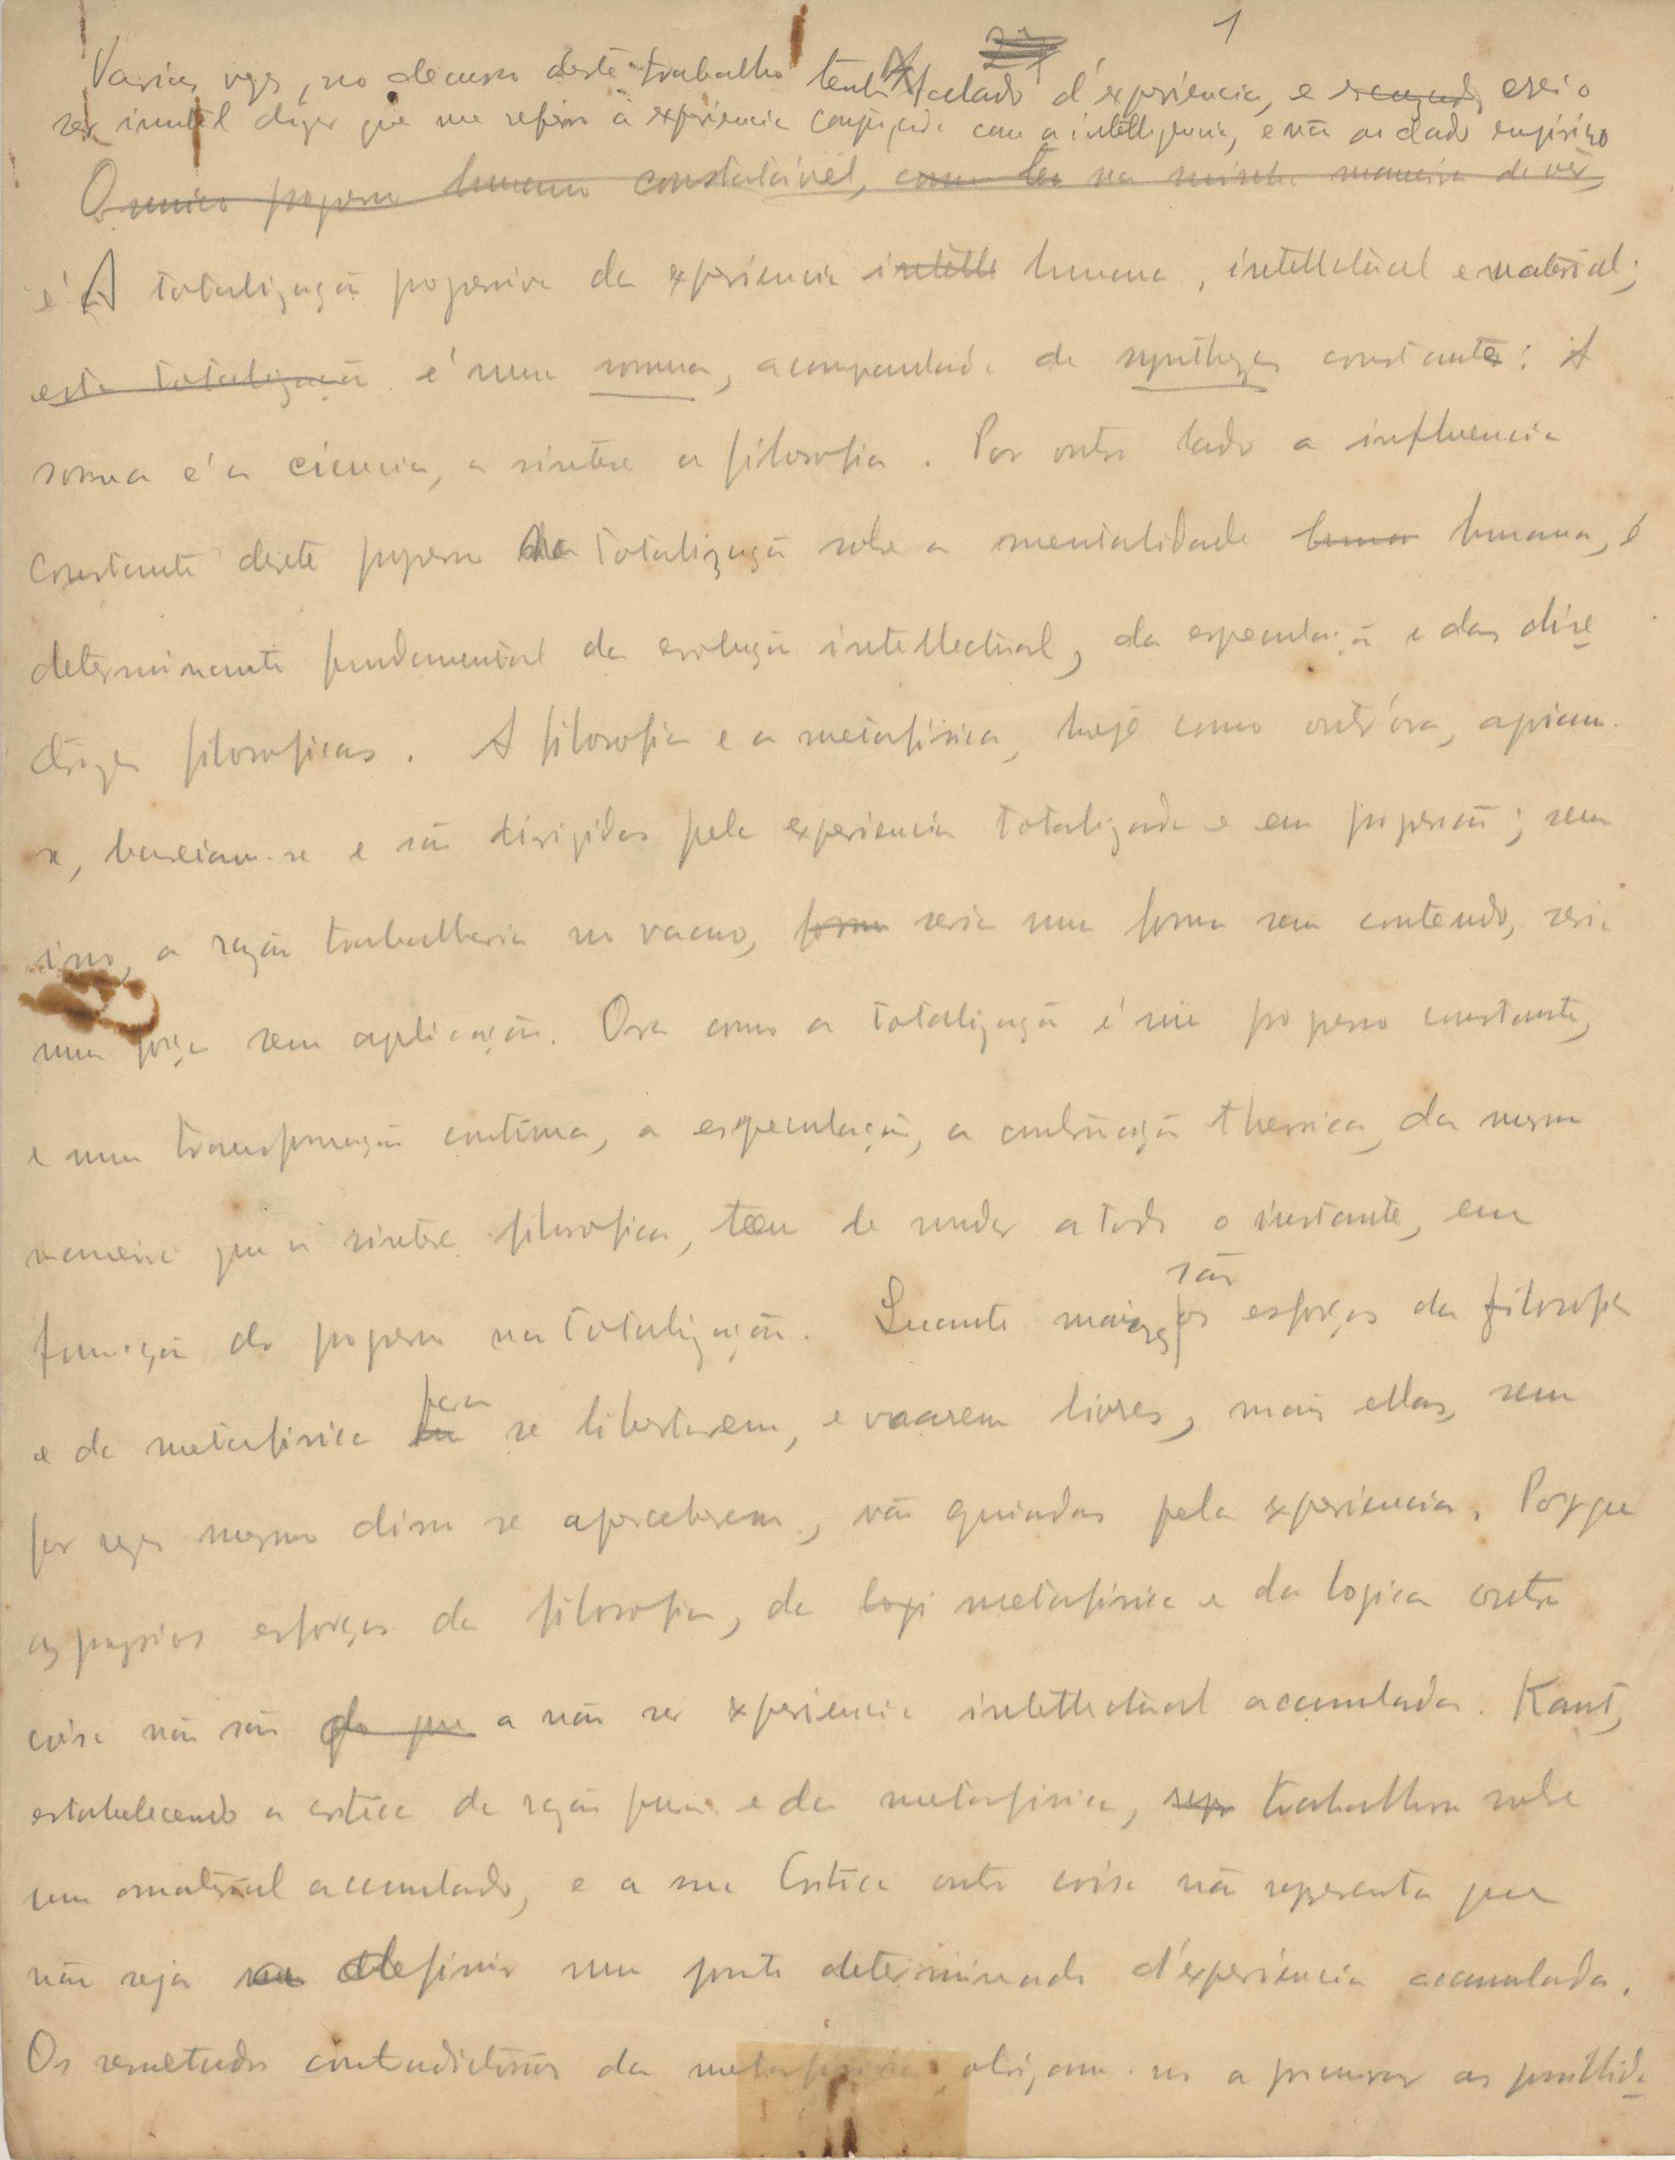 1
Varias vezes, no decurso deste trabalho tenho fallado d'experiencia, e creio
ser inutil dizer que me refiro á experiencia conjugada com a intelligencia, e não ao dado empirico
O unico progresso humano constatavel, na minha maneira de vêr,
é A totalização progressiva da experiencia intelle humana, intellectual e material;
esta totalização é uma somma, acompanhada de syntheses constantes: A
somma é a ciencia, a sintese a filosofia. Por outro lado a influencia
constante deste progresso na totalização sobre a mentalidade huma humana, é
determinante fundamental da evolução intellectual, da especulação e das dire
ções filosoficas. A filosofia e a metafisica, hoje como outr'ora, apoiam-
se, baseiam-se e são dirigidas pela experiencia totalizada e em progressão; sem
isso, a razão trabalharia no vacuo, forma seria uma forma sem contendo, seria
uma força sem aplicação. Ora como a totalização é um progresso constante,
e uma transformação continua, a especulação, a construção theorica, da mesma
maneira que a sintese filosofica, teem de mudar a todo o instante, em
função do progresso na totalização. Quanto maiores são os esforços da filosofia
e da metafisica para se libertarem, e voarem livres, mais ellas, sem
por vezes mesmo disso se aperceberem, vão guiadas pela experiencia. Porque
os proprios esforços da filosofia, da logi metafisica e da logica outra
coisa não são do que a não ser experiencia intellectual acumulada. Kant,
estabelecendo a critica da razão pura e da metafisica, trabalhou sobre
um material accumulado, e a sua Critica outra coisa não representa que
não seja definir um ponto determinado d'experiencia acumulada.
Os resultados contradictorios da metafisica, obrigam-nos a procurar as possibilida